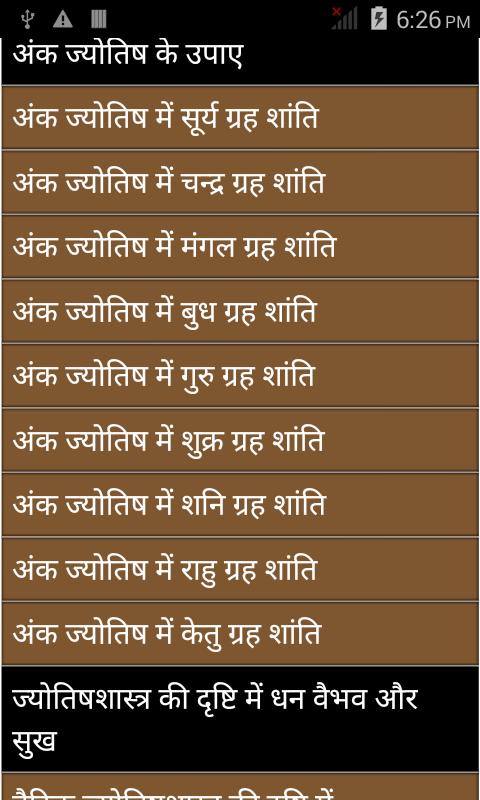 6:26 PM
अंक ज्योतिष के उपाए
अंक ज्योतिष में सूर्य ग्रह शांति
अंक ज्योतिष में चन्द्र ग्रह शांति
अंक ज्योतिष में मंगल ग्रह शांति
अंक ज्योतिष में बुध ग्रह शांति
अंक ज्योतिष में गुरु ग्रह शांति
अंक ज्योतिष में शुक्र ग्रह शांति
अंक ज्योतिष में शनि ग्रह शांति
अंक ज्योतिष में राहु ग्रह शांति
अंक ज्योतिष में केतु ग्रह शांति
ज्योतिषशास्त्र की दृष्टि में धन वैभव और
सुख